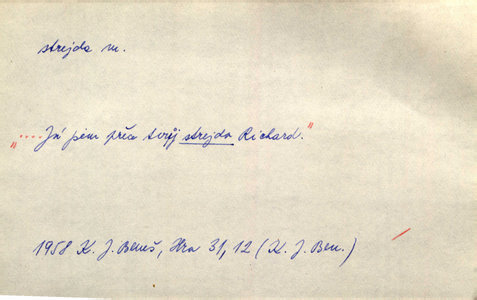 strejda m.
"....Já jsem přece tvůj strejda Richard."
1958 K. J. Beneš, Hra 31, 12 (K. J. Ben.)